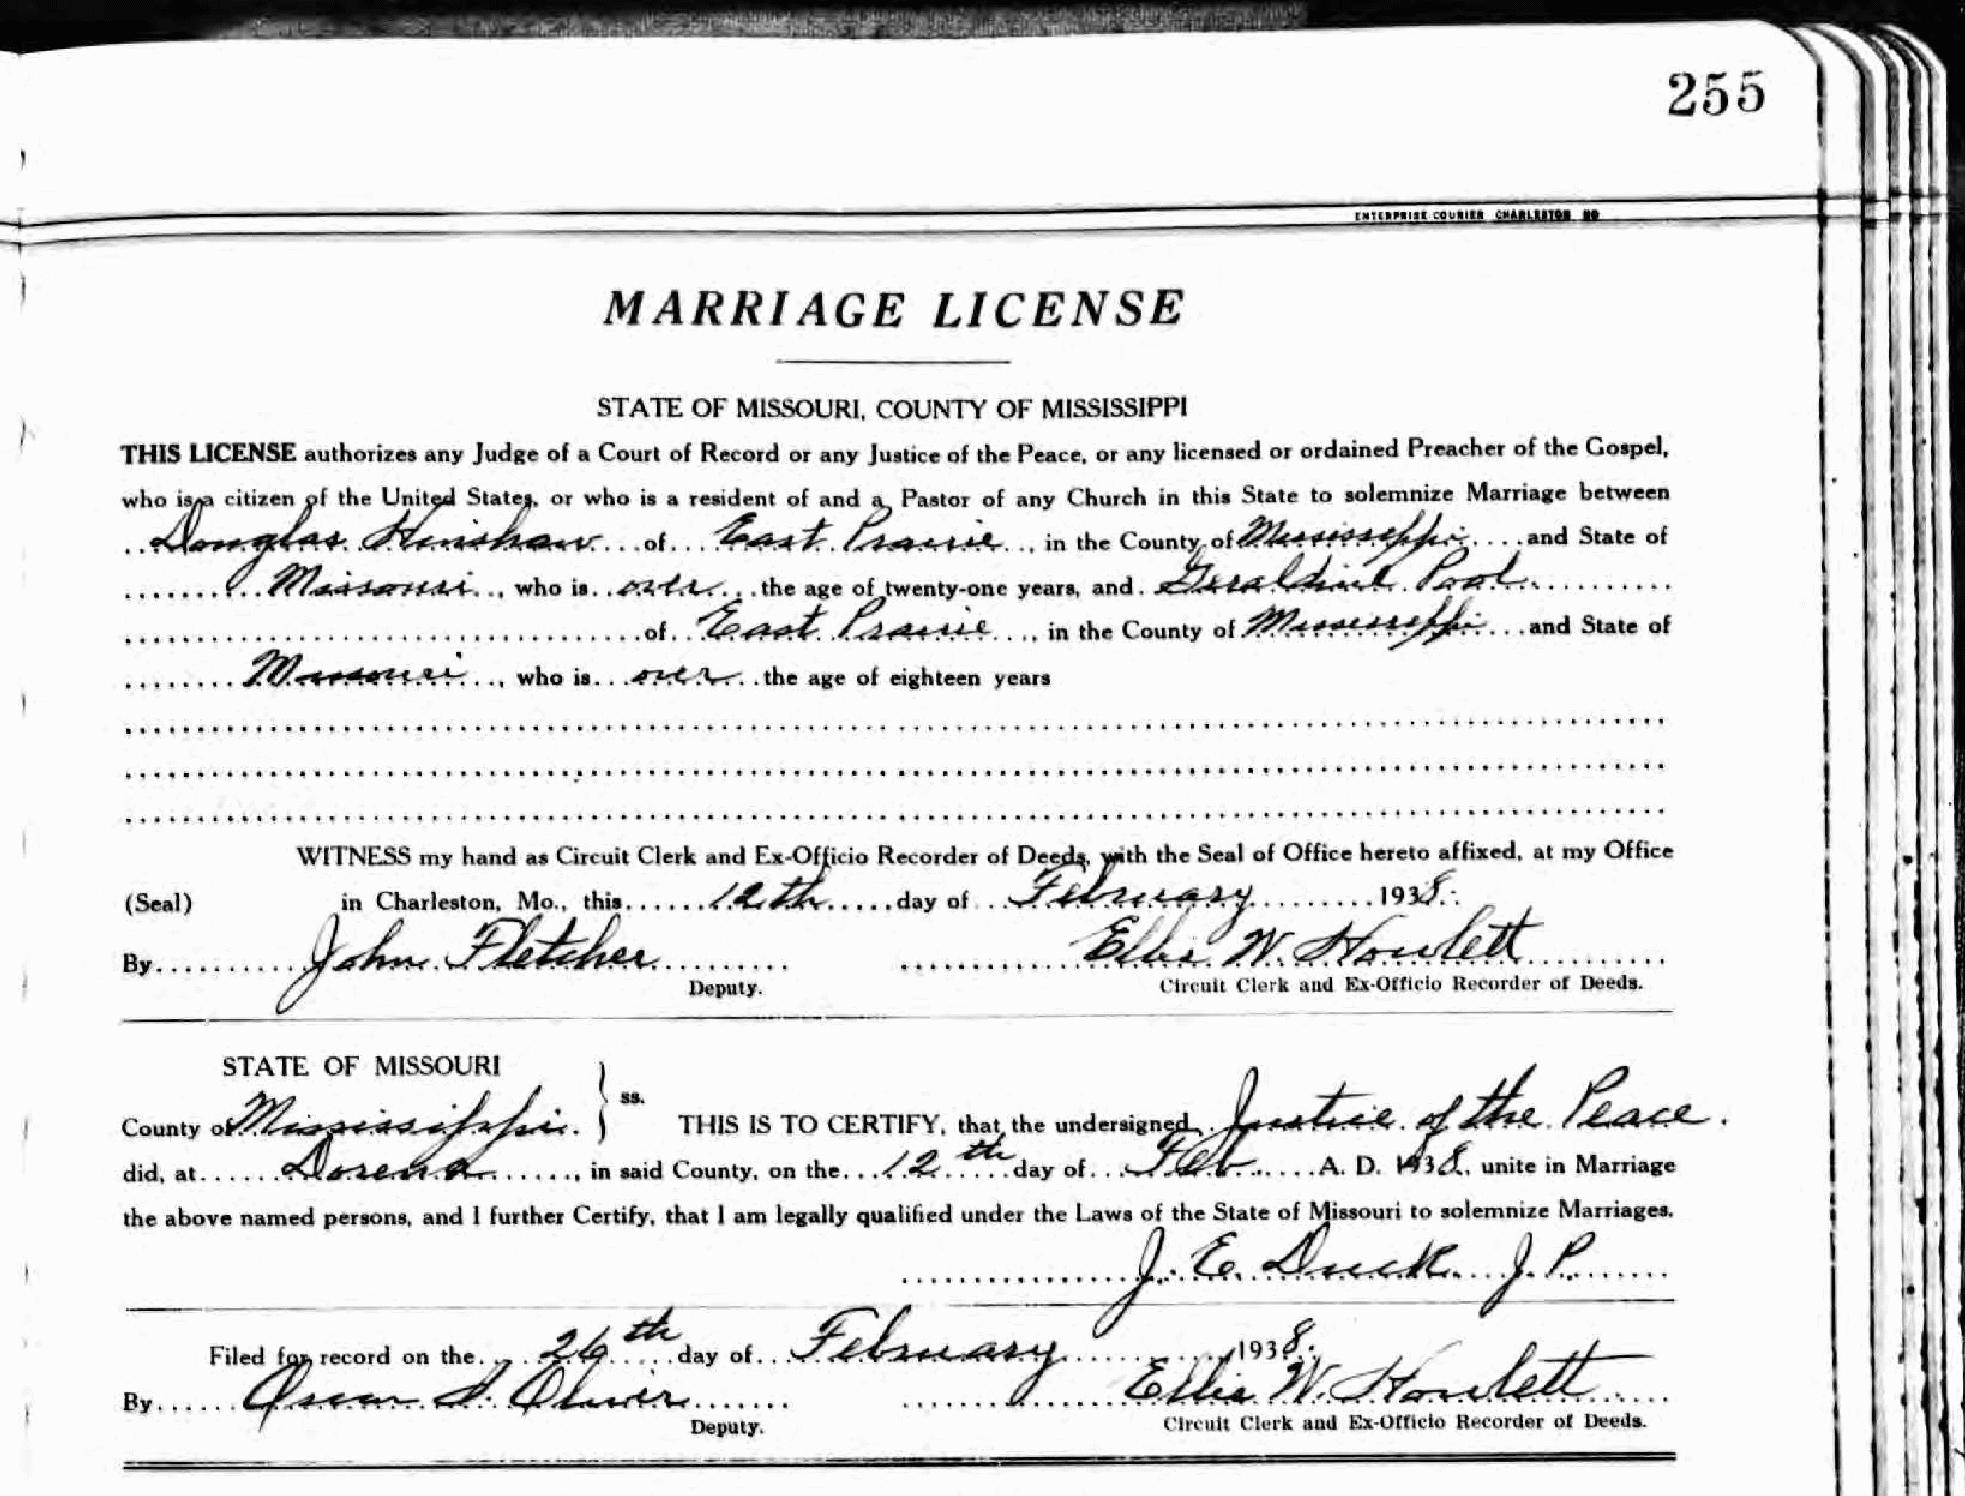 255
ENTERPRISE COURIER CHARLESTON MO
MARRIAGE LICENSE
STATE OF MISSOURI, COUNTY OF MISSISSIPPI
THIS LICENSE authorizes any Judge of a Court of Record or any Justice of the Peace, or any licensed or ordained Preacher of the Gospel,
who is a citizen of the United States, or who is a resident of and a Pastor of any Church in this State to solemnize Marriage between
Douglas Hinshaw of East Prairie, in the County of Mississippi and State of
Missouri, who is over the age of twenty-one years, and Geraldine Pool
of East Prairie, in the County of Mississippi and State of
Missouri, who is over the age of eighteen years
WITNESS my hand as Circuit Clerk and Ex-Officio Recorder of Deeds, with the Seal of Office hereto affixed, at my Office
(Seal) in Charleston, Mo., this 12th day of February 1938.
By John Fletcher Ellie W. Howlett
Deputy. Circuit Clerk and Ex-Officio Recorder of Deeds.
STATE OF MISSOURI
County of Mississippi. } ss. THIS IS TO CERTIFY, that the undersigned Justice of the Peace.
did, at Dorena, in said County, on the 12th day of Feb A. D. 1938, unite in Marriage
the above named persons, and I further Certify, that I am legally qualified under the Laws of the State of Missouri to solemnize Marriages.
J. E. Duck J. P.
Filed for record on the 26th day of February 1938.
By Oscar Oliver Ellie W. Howlett
Deputy. Circuit Clerk and Ex-Officio Recorder of Deeds.